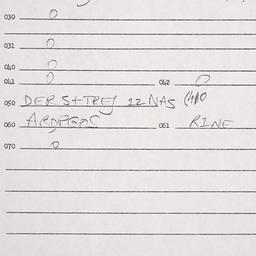 030 0
031 0
040 0
041 0 042 0
050 DER S+TREJ 12 NAS
060 061 RINE
070 0